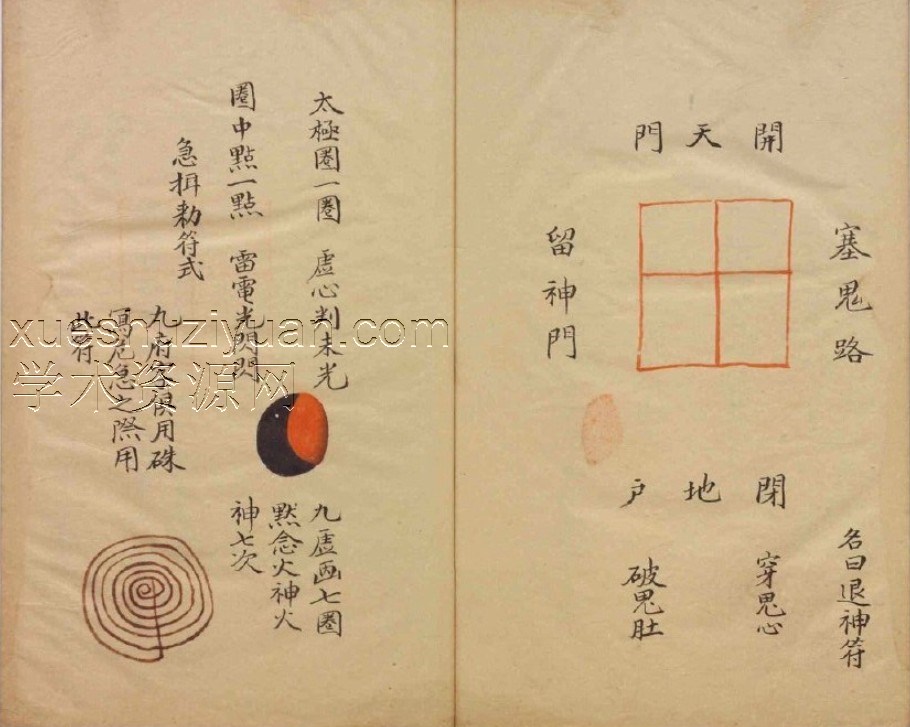 開天門
塞鬼路
留神門
閉地戶
名曰退神符
穿鬼心
破鬼肚
太極圈一圈 虛心判未光
圈中點一點 雷電光閃閃
九虛画七圈
黙念火神火
神七次
急捐勅符式
九府
俱用硃
寫危急之際用
此符
xueshuziyuan.com
学术资源网